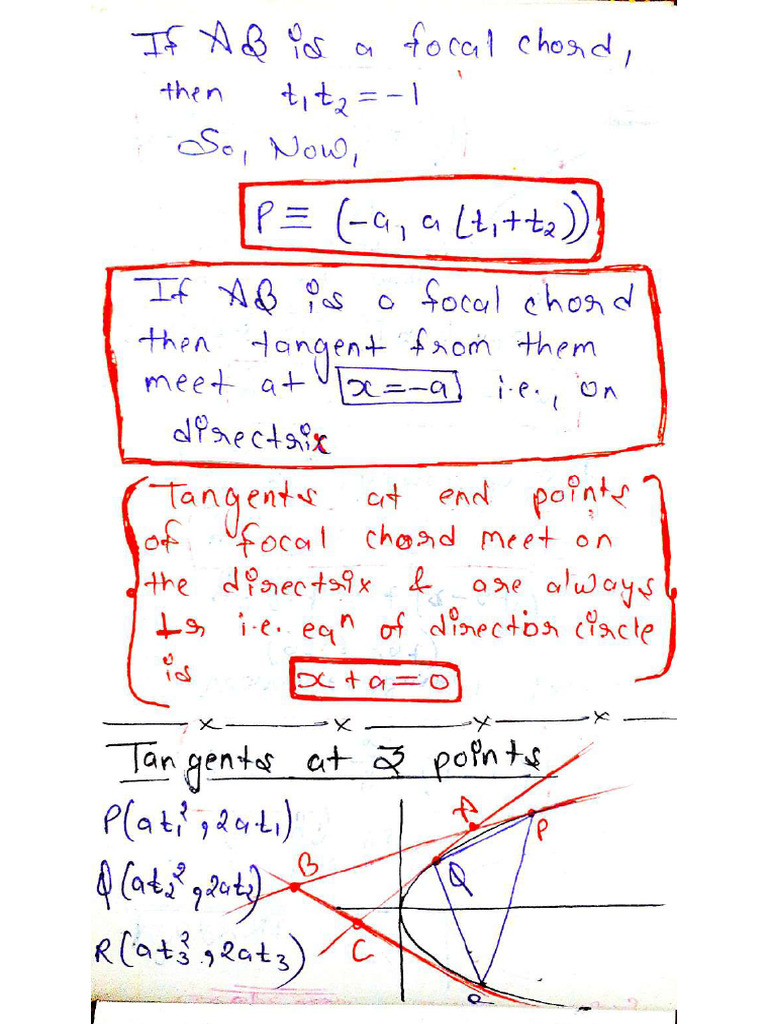 If AB is a focal chord,
then t₁t₂ = -1
So, Now,
P ≡ (-a, a(t₁+t₂))
If AB is a focal chord
then tangent from them
meet at x=-a i.e., on
directrix
Tangents at end points
of focal chord meet on
the directrix & are always
⊥r i.e. eqⁿ of director circle
is x+a=0
Tangents at 3 points
P(at₁², 2at₁)
Q(at₂², 2at₂)
R(at₃², 2at₃)
A
P
B
Q
C